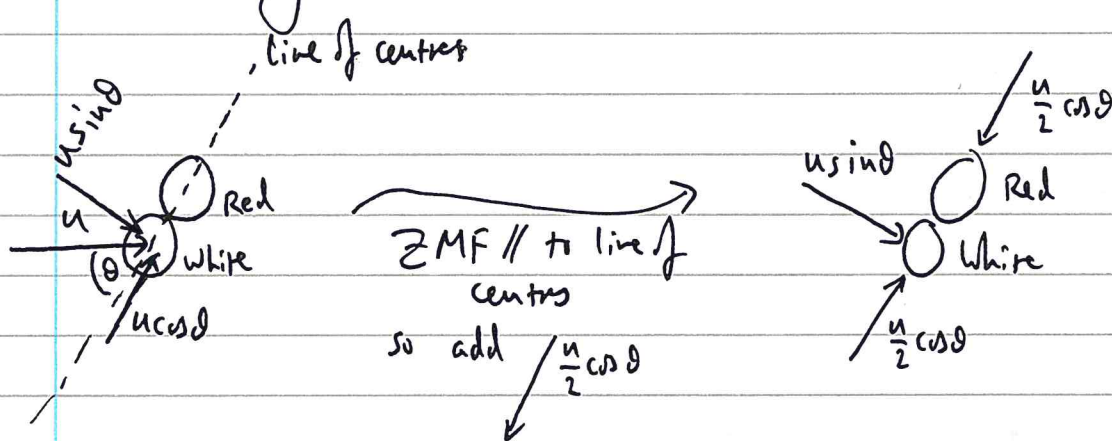 line of centres
u sinθ
u
Red
White
θ
u cosθ
ZMF // to line of
centres
so add
u/2 cosθ
u/2 cosθ
u sinθ
Red
White
u/2 cosθ